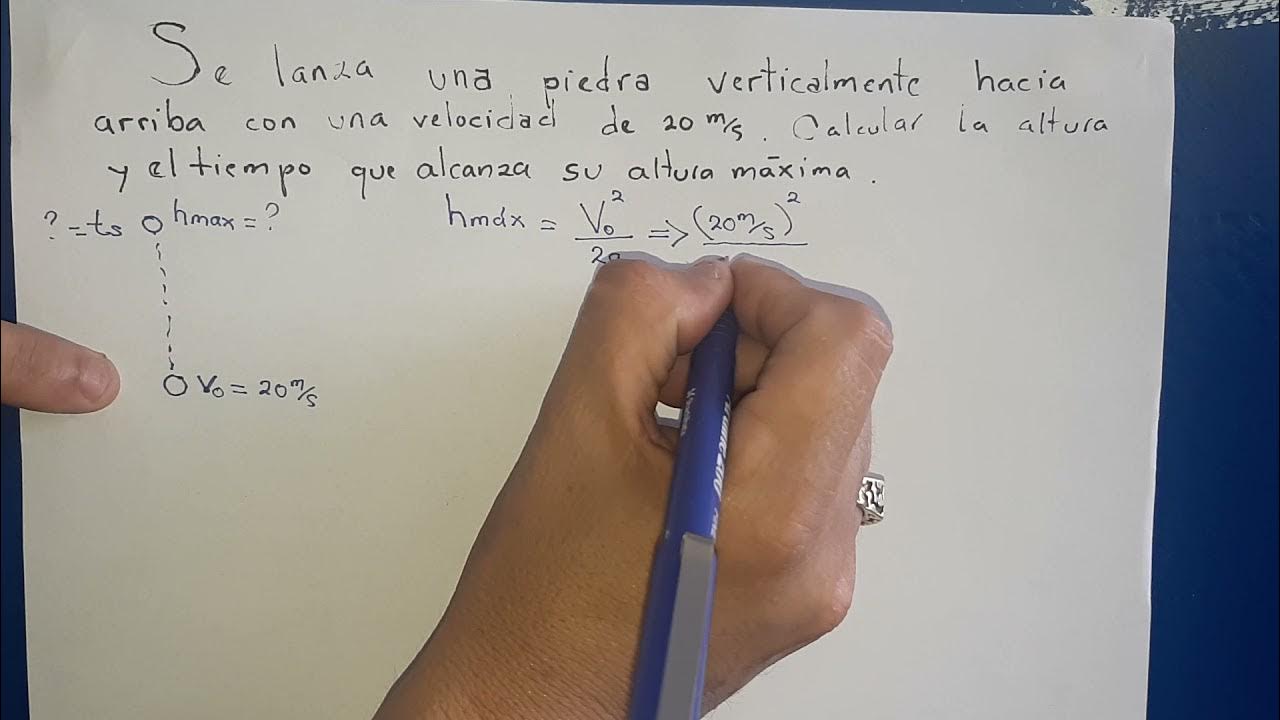 Se lanza una piedra verticalmente hacia
arriba con una velocidad de 20 m/s. Calcular la altura
y el tiempo que alcanza su altura máxima.
? = ts hmax = ?
hmáx = V₀² / 2g => (20 m/s)²
V₀ = 20 m/s